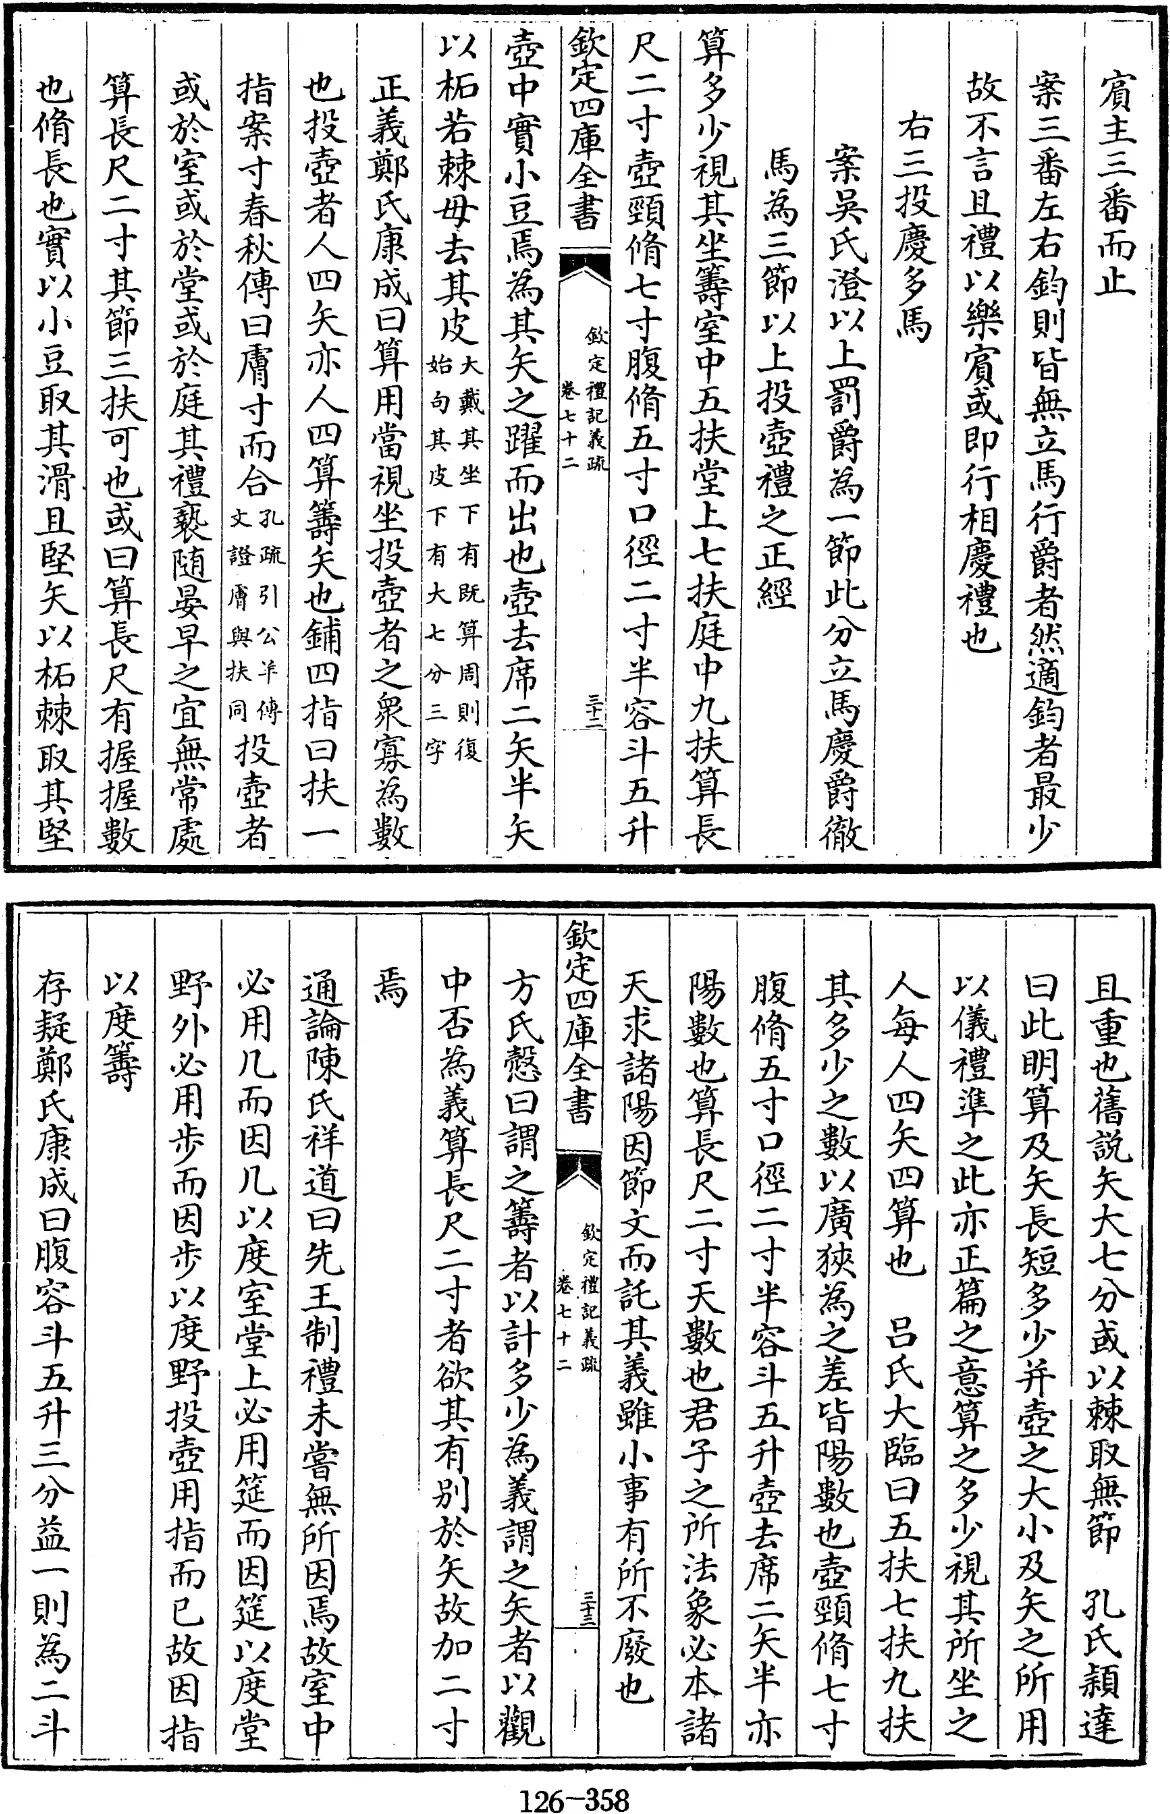 賔主三番而止
案三番左右鈞則皆無立馬行爵者然適鈞者最少
故不言且禮以樂賔或即行相慶禮也
右三投慶多馬
案吳氏澄以上罰爵為一節此分立馬慶爵徹
馬為三節以上投壺禮之正經
算多少視其坐籌室中五扶堂上七扶庭中九扶算長
尺二寸壺頸脩七寸腹脩五寸口徑二寸半容斗五升
欽定四庫全書
欽定禮記義疏
卷七十二
三十二
壺中實小豆焉為其矢之躍而出也壺去席二矢半矢
以柘若棘毋去其皮大戴其坐下有既算周則復始句其皮下有大七分三字
正義鄭氏康成曰算用當視坐投壺者之衆寡為數
也投壺者人四矢亦人四算籌矢也鋪四指曰扶一
指案寸春秋傳曰膚寸而合孔疏引公羊傳文證膚與扶同投壺者
或於室或於堂或於庭其禮褻隨晏早之宜無常處
算長尺二寸其節三扶可也或曰算長尺有握握數
也脩長也實以小豆取其滑且堅矢以柘棘取其堅
且重也舊說矢大七分或以棘取無節 孔氏穎達
曰此明算及矢長短多少并壺之大小及矢之所用
以儀禮準之此亦正篇之意算之多少視其所坐之
人每人四矢四算也 呂氏大臨曰五扶七扶九扶
其多少之數以廣狹為之差皆陽數也壺頸脩七寸
腹脩五寸口徑二寸半容斗五升壺去席二矢半亦
陽數也算長尺二寸天數也君子之所法象必本諸
天求諸陽因節文而託其義雖小事有所不廢也
欽定四庫全書
欽定禮記義疏
卷七十二
三十三
方氏慤曰謂之籌者以計多少為義謂之矢者以觀
中否為義算長尺二寸者欲其有別於矢故加二寸
焉
通論陳氏祥道曰先王制禮未嘗無所因焉故室中
必用几而因几以度室堂上必用筵而因筵以度堂
野外必用步而因步以度野投壺用指而已故因指
以度籌
存疑鄭氏康成曰腹容斗五升三分益一則為二斗
126-358